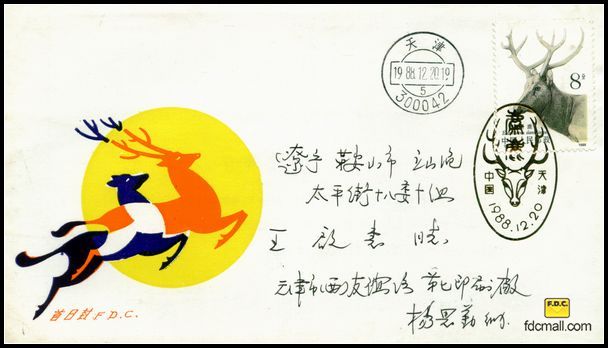 天津
1988.12.20.19
5
300042
8分
1988
中国 天津
1988.12.20
辽宁 鞍山市 立山区
太平街十八委十组
王 启 惠 收
天津市河西友谊路 第七印刷厂
杨思勤
首日封 F.D.C.
F.D.C.
fdcmall.com